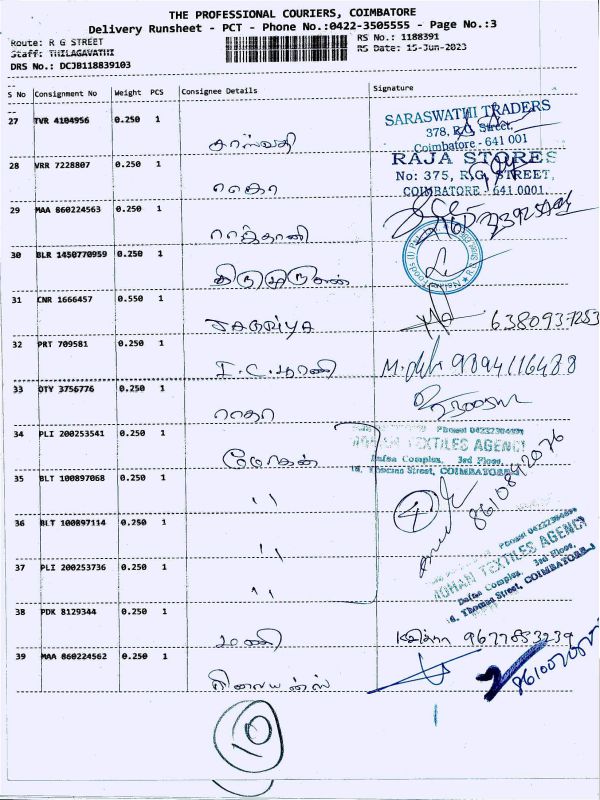 THE PROFESSIONAL COURIERS, COIMBATORE
Delivery Runsheet - PCT - Phone No.:0422-3505555 - Page No.:3
Route: R G STREET
RS No.: 1188391
Staff: THILAGAVATHI
RS Date: 15-Jun-2023
DRS No.: DCJB118839103
S No Consignment No Weight PCS Consignee Details Signature
27 TVR 4104956 0.250 1
SARASWATHI TRADERS
378, R.G. Street,
Coimbatore - 641 001
28 VRR 7228807 0.250 1
RAJA STORES
No: 375, R.G. STREET,
COIMBATORE - 641 0001.
29 MAA 860224563 0.250 1
30 BLR 1450770959 0.250 1
31 CNR 1666457 0.550 1
6380937253
32 PRT 709581 0.250 1
I.C. ராணி 9894116488
33 OTY 3756776 0.250 1
ராதா
34 PLI 200253541 0.250 1
மோகன்
MOHAN TEXTILES AGENCY
Dafaa Complex, 3rd Floor,
18, Thomas Street, COIMBATORE-1
35 BLT 100897068 0.250 1
"
4
8610842026
36 BLT 100897114 0.250 1
"
MOHAN TEXTILES AGENCY
Dafaa Complex, 3rd Floor,
18, Thomas Street, COIMBATORE-1
37 PLI 200253736 0.250 1
"
38 PDK 8129344 0.250 1
மணி
9677853239
39 MAA 860224562 0.250 1
ரிலையன்ஸ்
10